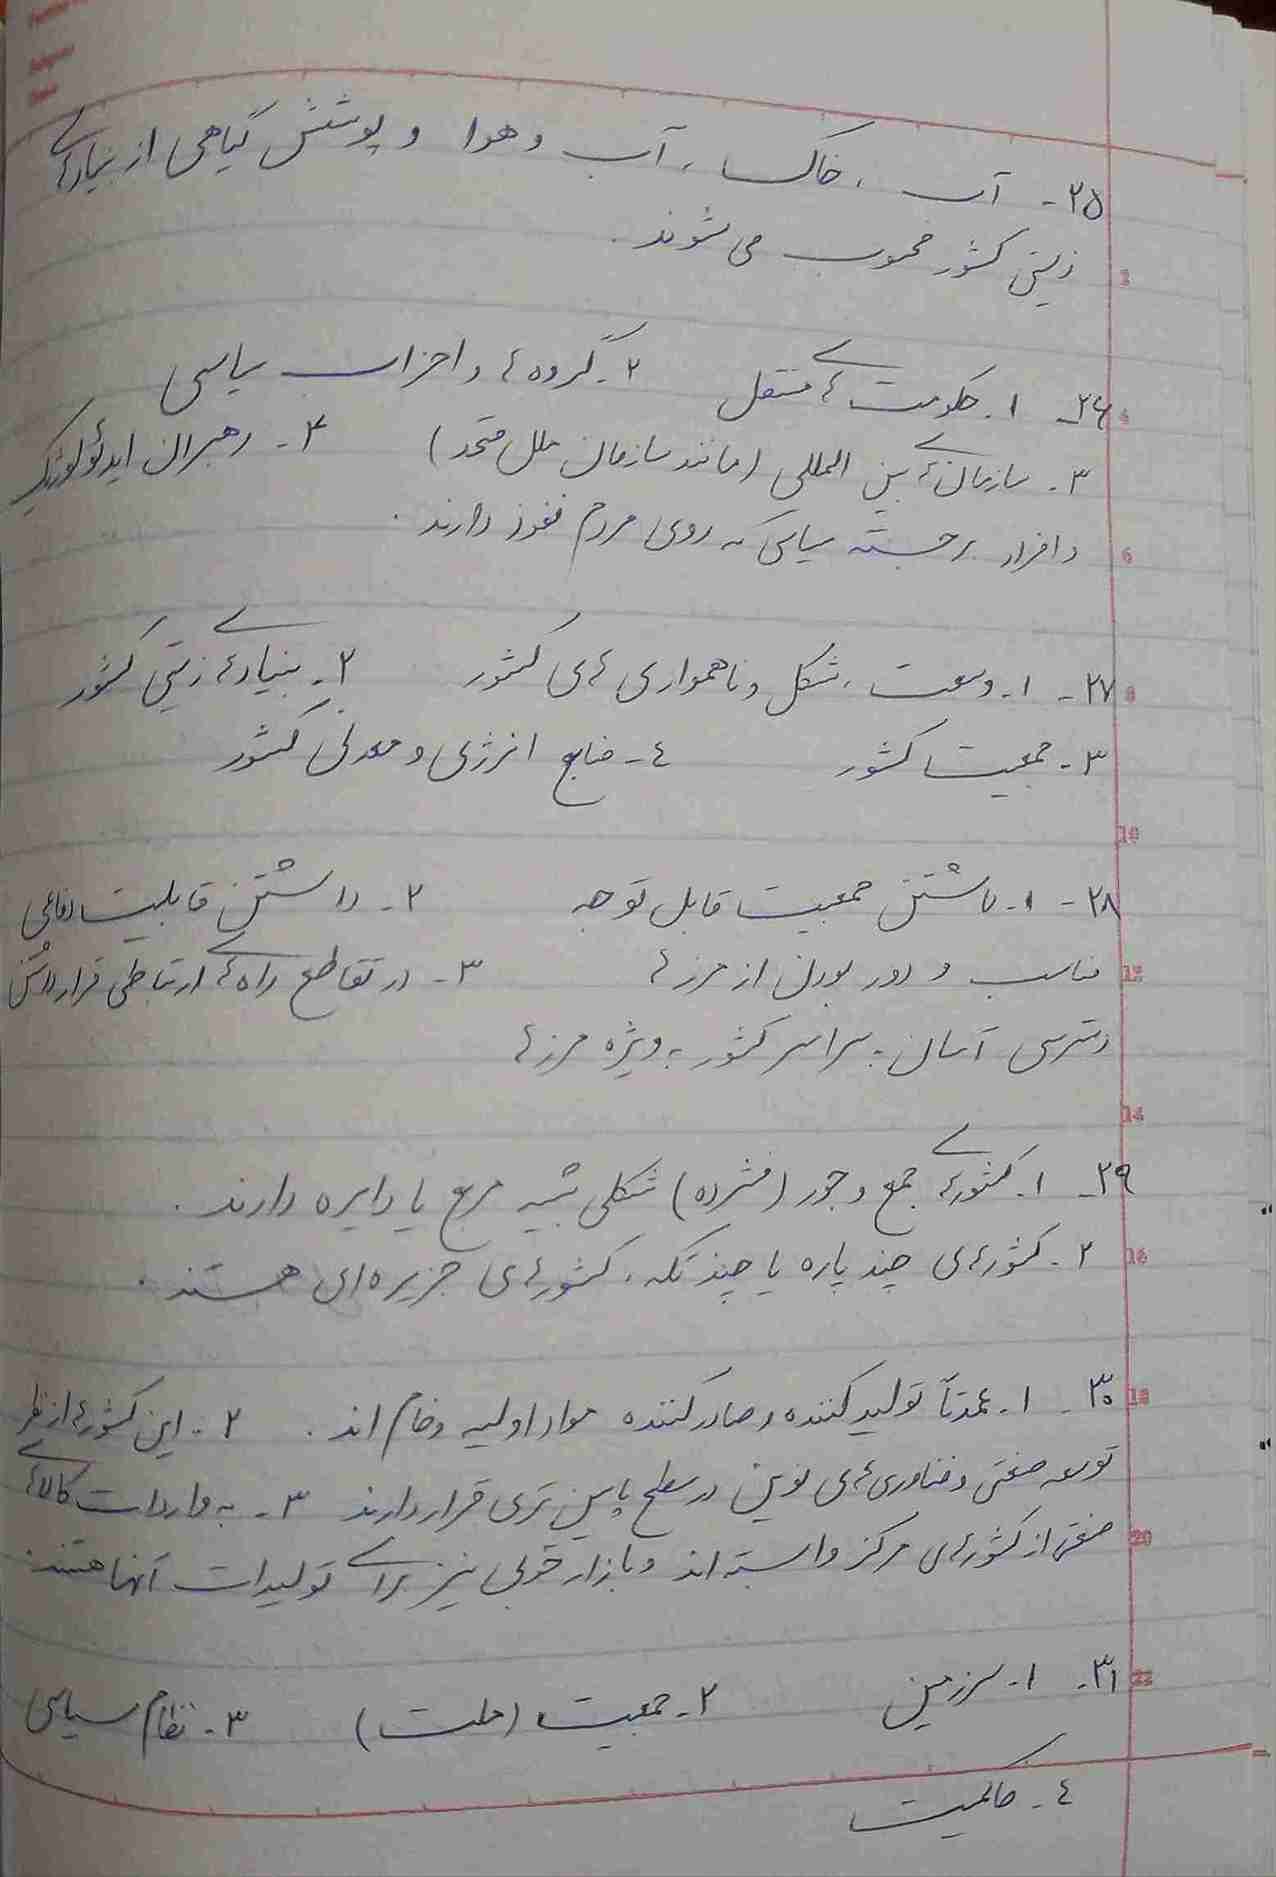 ۲۵- آب، خاک، آب و هوا و پوشش گیاهی از بنیادهای
زیستی کشور محسوب می شوند.
۲۶- ۱- حکومت های مستقل ۲- گروه ها و احزاب سیاسی
۳- سازمان های بین المللی (مانند سازمان ملل متحد) ۴- رهبران ایدئولوژیک
و افراد برجسته سیاسی که روی مردم نفوذ دارند.
۲۷- ۱- وسعت، شکل و ناهمواری های کشور ۲- بنیادهای زیستی کشور
۳- جمعیت کشور ٤- منابع انرژی و معدنی کشور
۲۸- ۱- داشتن جمعیت قابل توجه ۲- داشتن قابلیت دفاعی
مناسب و دور بودن از مرزها ۳- در تقاطع راه های ارتباطی قرار داشتن
دسترسی آسان به سراسر کشور به ویژه مرزها
۲۹- ۱- کشورهای جمع و جور (فشرده) شکلی شبیه مربع یا دایره دارند.
۲- کشورهای چند پاره یا چند تکه، کشورهای جزیره ای هستند.
۳۰- ۱- عمدتاً تولید کننده و صادر کننده مواد اولیه و خام اند. ۲- این کشورها از نظر
توسعه صنعتی و فناوری های نوین در سطح پایین تری قرار دارند ۳- به واردات کالاهای
صنعتی از کشورهای مرکز وابسته اند و بازار خوبی نیز برای تولیدات آنها هستند.
۳۱- ۱- سرزمین ۲- جمعیت (ملت) ۳- نظام سیاسی
٤- حاکمیت
2
4
6
8
10
12
14
16
18
20
22